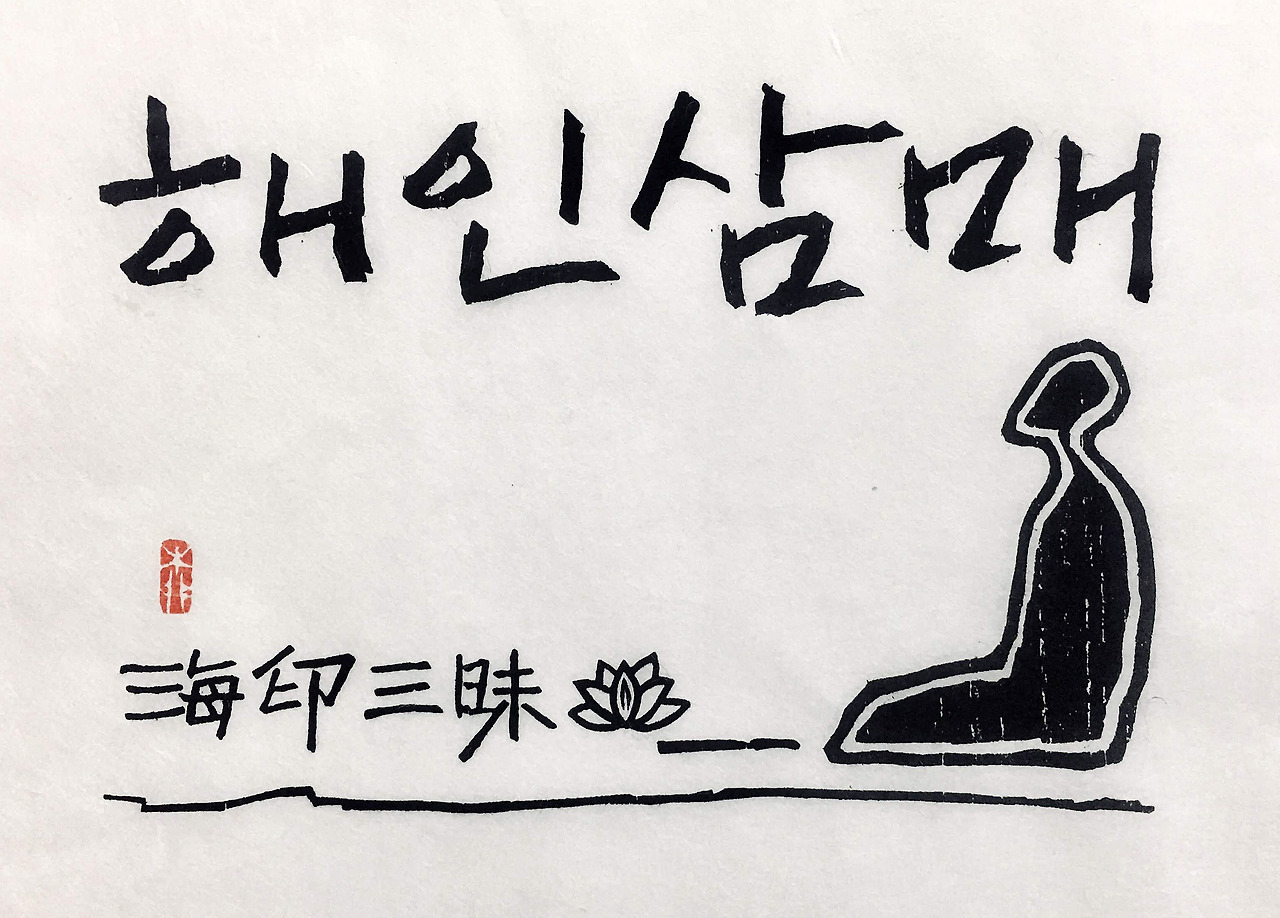 해인삼매
海印三昧